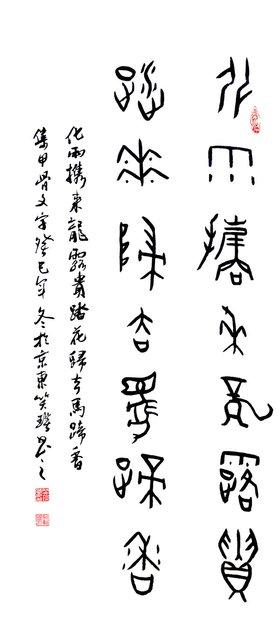 化雨攜來龍露貴
踏花歸去馬蹄香
化雨攜來龍露貴踏花歸去馬蹄香
集甲骨文字癸巳年冬於京東笑